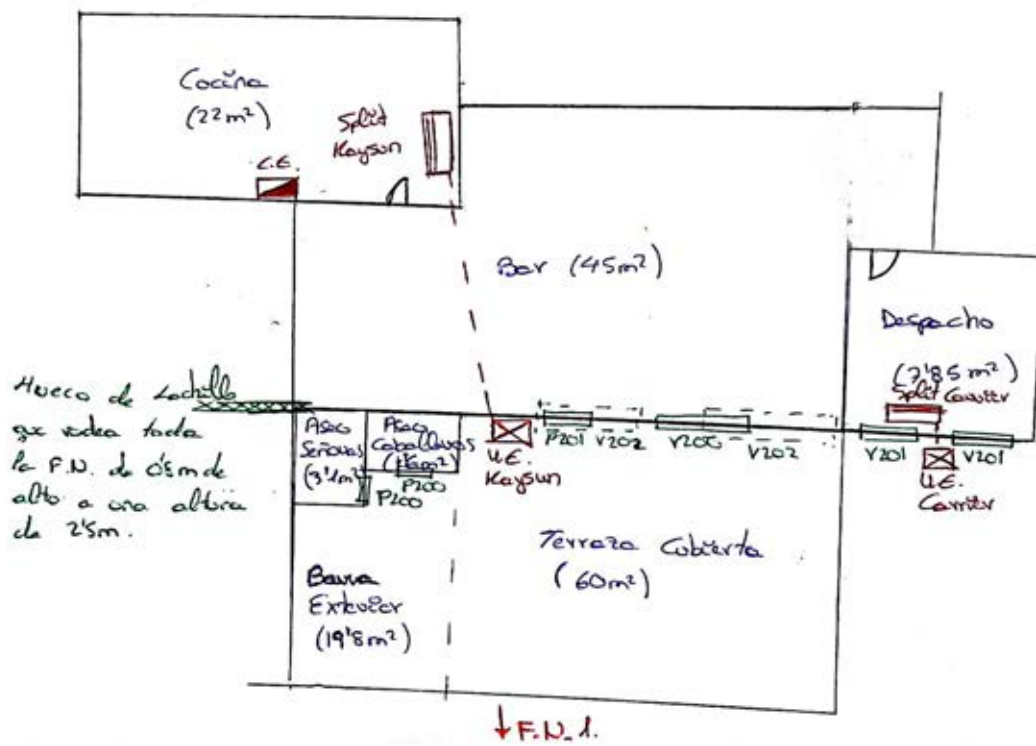 Cocina
(22m²)
Split
Kaysun
C.E.
Bar (45m²)
Despacho
(7'85 m²)
Split Carrier
Hueco de
que rodea toda
la F.N. de 0'5m de
alto a una altura
de 2'5m.
Aseo
Señoras
(3'1m²)
Aseo
Caballeros
P200
P200
U.E.
Kaysun
P201
V202
V200
V202
V201
V201
U.E.
Carrier
Terraza Cubierta
(60m²)
Barra
Exterior
(19'8m²)
↓ F.N. 1.